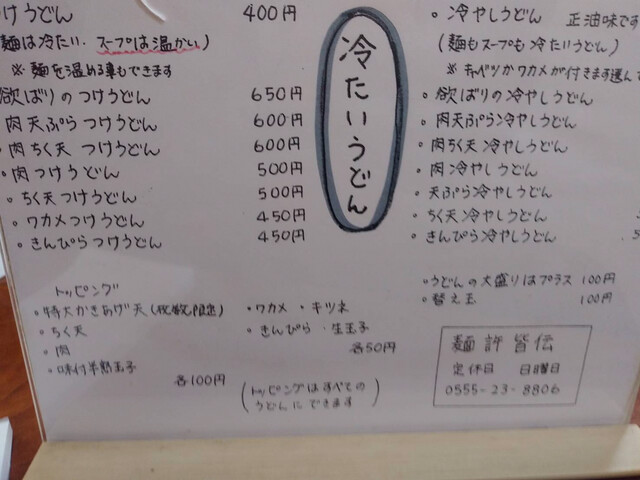 つけうどん 400円
(麺は冷たい、スープは温かい)
※麺を温める事もできます
欲ばりのつけうどん 650円
・肉天ぷらつけうどん 600円
・肉ちく天つけうどん 600円
・肉つけうどん 500円
・ちく天つけうどん 500円
・ワカメつけうどん 450円
・きんぴらつけうどん 450円
冷たいうどん
・冷やしうどん 正油味です
(麺もスープも冷たいうどん)
※キャベツかワカメが付きます選んで
・欲ばりの冷やしうどん
・肉天ぷら冷やしうどん
・肉ちく天冷やしうどん
・肉冷やしうどん
・天ぷら冷やしうどん
・ちく天冷やしうどん
・きんぴら冷やしうどん
トッピング
・特大かきあげ天(枚数限定)
・ちく天
・肉
・味付半熟玉子
各100円
・ワカメ ・キツネ
・きんぴら ・生玉子
各50円
(トッピングはすべての
うどんにできます)
・うどんの大盛りはプラス 100円
・替え玉 100円
麺許皆伝
定休日 日曜日
0555-23-8806